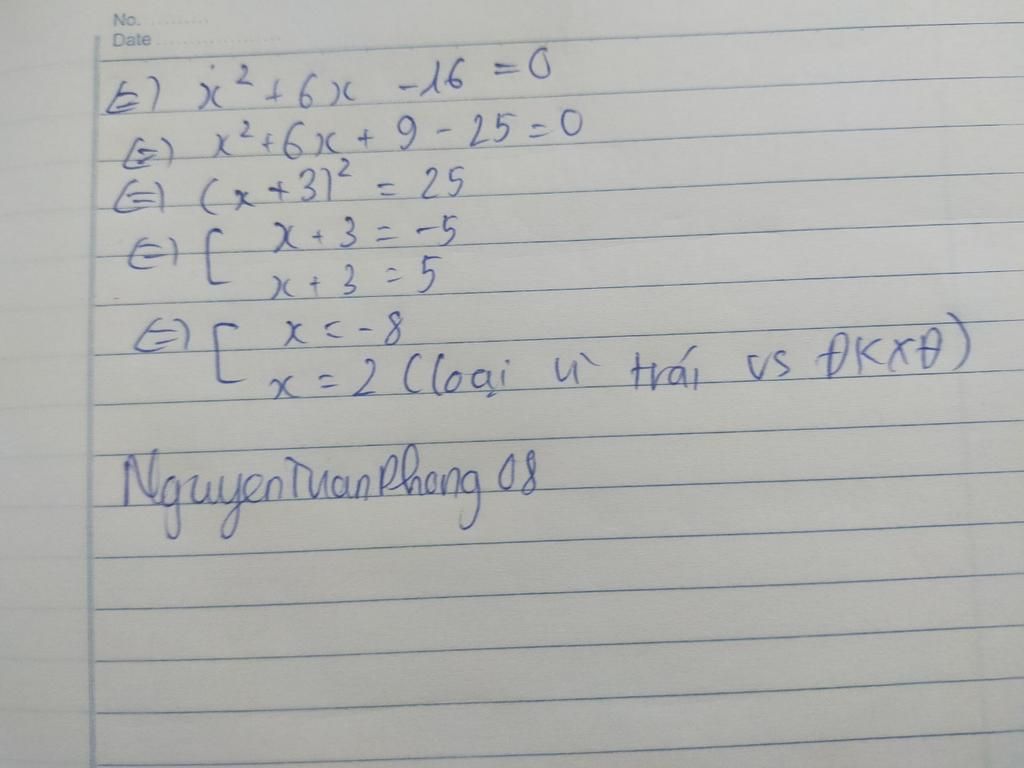 No.
Date
⇔ x² + 6x - 16 = 0
⇔ x² + 6x + 9 - 25 = 0
⇔ (x + 3)² = 25
⇔ [ x + 3 = -5
x + 3 = 5
⇔ [ x = -8
x = 2 (loại vì trái vs ĐKXĐ)
NguyenTuanPhong 08